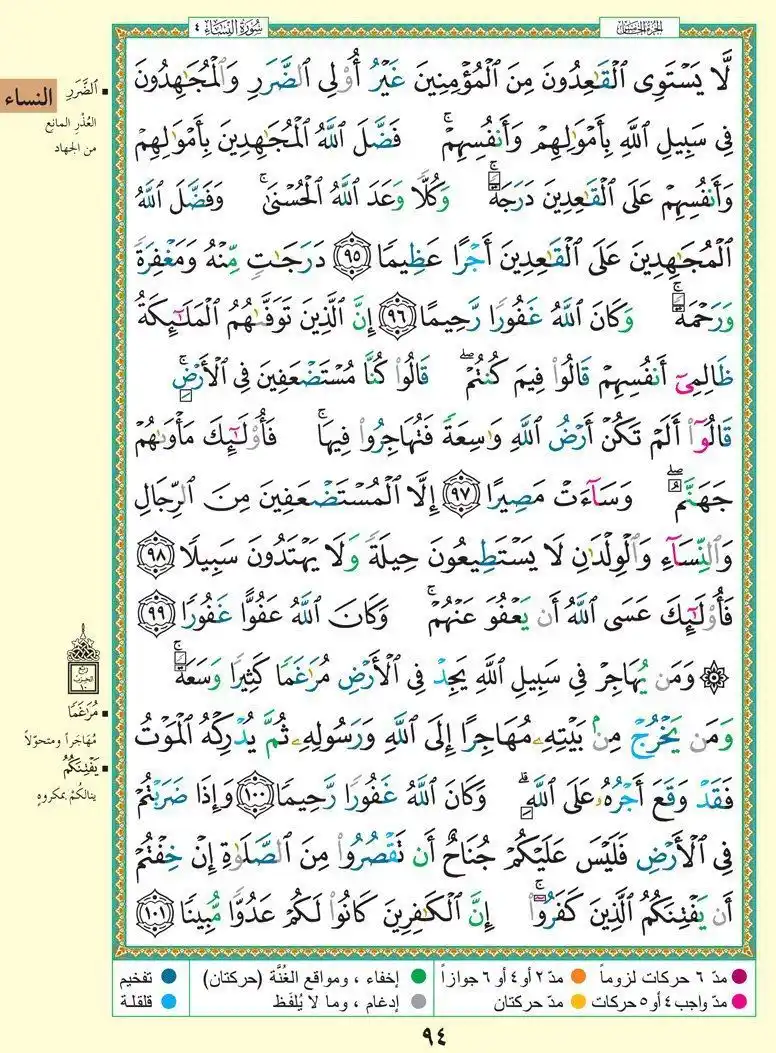 سُورَةُ النِّسَاء ٤
الجزء الخامس
لَّا يَسْتَوِى ٱلْقَٰعِدُونَ مِنَ ٱلْمُؤْمِنِينَ غَيْرُ أُو۟لِى ٱلضَّرَرِ وَٱلْمُجَٰهِدُونَ
فِى سَبِيلِ ٱللَّهِ بِأَمْوَٰلِهِمْ وَأَنفُسِهِمْ ۚ فَضَّلَ ٱللَّهُ ٱلْمُجَٰهِدِينَ بِأَمْوَٰلِهِمْ
وَأَنفُسِهِمْ عَلَى ٱلْقَٰعِدِينَ دَرَجَةً ۚ وَكُلًّا وَعَدَ ٱللَّهُ ٱلْحُسْنَىٰ ۚ وَفَضَّلَ ٱللَّهُ
ٱلْمُجَٰهِدِينَ عَلَى ٱلْقَٰعِدِينَ أَجْرًا عَظِيمًا ٩٥ دَرَجَٰتٍ مِّنْهُ وَمَغْفِرَةً
وَرَحْمَةً ۚ وَكَانَ ٱللَّهُ غَفُورًا رَّحِيمًا ٩٦ إِنَّ ٱلَّذِينَ تَوَفَّىٰهُمُ ٱلْمَلَٰٓئِكَةُ
ظَالِمِىٓ أَنفُسِهِمْ قَالُوا۟ فِيمَ كُنتُمْ ۖ قَالُوا۟ كُنَّا مُسْتَضْعَفِينَ فِى ٱلْأَرْضِ ۚ
قَالُوٓا۟ أَلَمْ تَكُنْ أَرْضُ ٱللَّهِ وَٰسِعَةً فَتُهَاجِرُوا۟ فِيهَا ۚ فَأُو۟لَٰٓئِكَ مَأْوَىٰهُمْ
جَهَنَّمُ ۖ وَسَآءَتْ مَصِيرًا ٩٧ إِلَّا ٱلْمُسْتَضْعَفِينَ مِنَ ٱلرِّجَالِ
وَٱلنِّسَآءِ وَٱلْوِلْدَٰنِ لَا يَسْتَطِيعُونَ حِيلَةً وَلَا يَهْتَدُونَ سَبِيلًا ٩٨
فَأُو۟لَٰٓئِكَ عَسَى ٱللَّهُ أَن يَعْفُوَ عَنْهُمْ ۚ وَكَانَ ٱللَّهُ عَفُوًّا غَفُورًا ٩٩
۞ وَمَن يُهَاجِرْ فِى سَبِيلِ ٱللَّهِ يَجِدْ فِى ٱلْأَرْضِ مُرَٰغَمًا كَثِيرًا وَسَعَةً ۚ
وَمَن يَخْرُجْ مِنۢ بَيْتِهِۦ مُهَاجِرًا إِلَى ٱللَّهِ وَرَسُولِهِۦ ثُمَّ يُدْرِكْهُ ٱلْمَوْتُ
فَقَدْ وَقَعَ أَجْرُهُۥ عَلَى ٱللَّهِ ۗ وَكَانَ ٱللَّهُ غَفُورًا رَّحِيمًا ١٠٠ وَإِذَا ضَرَبْتُمْ
فِى ٱلْأَرْضِ فَلَيْسَ عَلَيْكُمْ جُنَاحٌ أَن تَقْصُرُوا۟ مِنَ ٱلصَّلَوٰةِ إِنْ خِفْتُمْ
أَن يَفْتِنَكُمُ ٱلَّذِينَ كَفَرُوٓا۟ ۚ إِنَّ ٱلْكَٰفِرِينَ كَانُوا۟ لَكُمْ عَدُوًّا مُّبِينًا ١٠١
النساء
ٱلضَّرَرِ
العُذْرِ المانِع
من الجهاد
ربع
الحزب
١٠
مُرَٰغَمًا
مُهَاجَراً ومتحوّلاً
يَفْتِنَكُمُ
ينالكُمْ بمكروهٍ
مدّ ٦ حركات لزوماً
مدّ ٢ أو ٤ أو ٦ جوازاً
إخفاء ، ومواقع الغُنَّة (حركتان)
تفخيم
مدّ واجب ٤ أو ٥ حركات
مدّ حركتان
إدغام ، وما لا يُلفَظ
قلقلة
٩٤